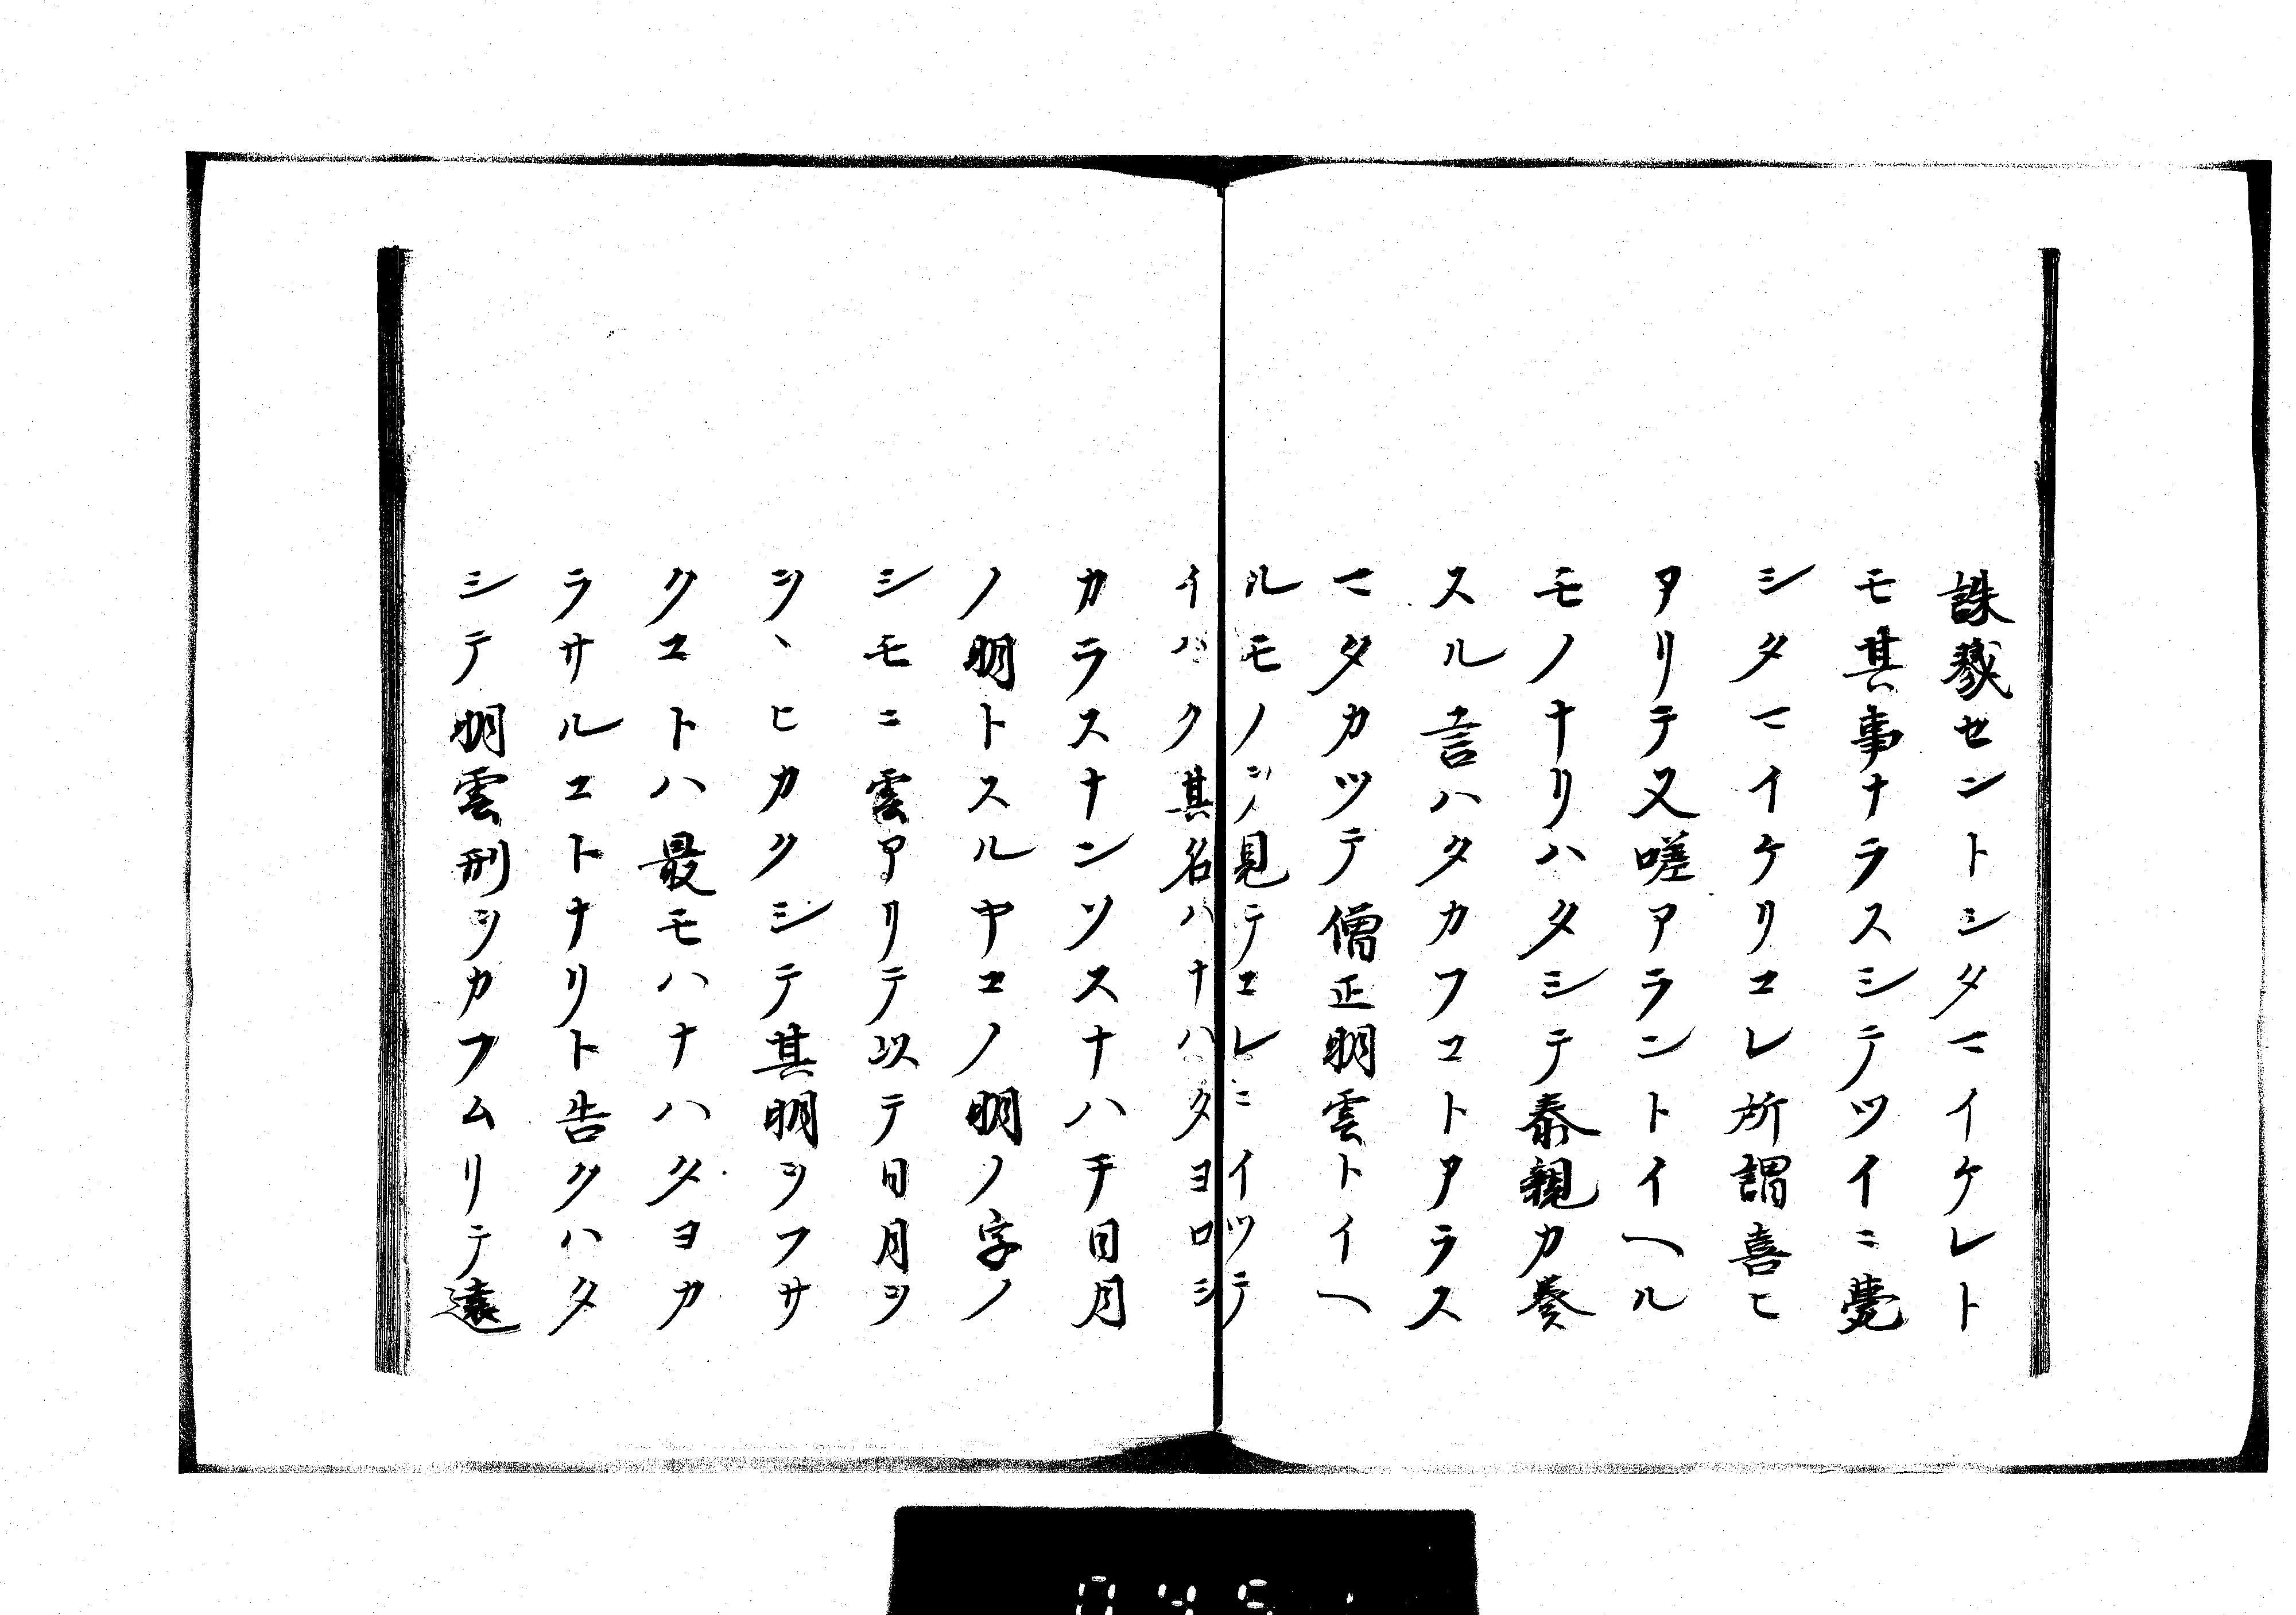 誅戮セントシタマイケレト
モ其事ナラスシテツイニ薨
シタマイケリコレ所謂喜ヒ
アリテ又嗟アラントイヘル
モノナリハタシテ泰親カ奏
スル言ハタカフコトアラス
マタカツテ僧正明雲トイヘ
ルモノヲ見テコレニイツテ
イハク其名ハナハタヨロシ
カラスナンソスナハチ日月
ノ明トスルヤコノ明ノ字ノ
シモニ雲アリテ以テ日月ヲ
ヲヽヒカクシテ其明ヲフサ
クコトハ最モハナハタヨカ
ラサルコトナリト告クハタ
シテ明雲刑ヲカフムリテ遠